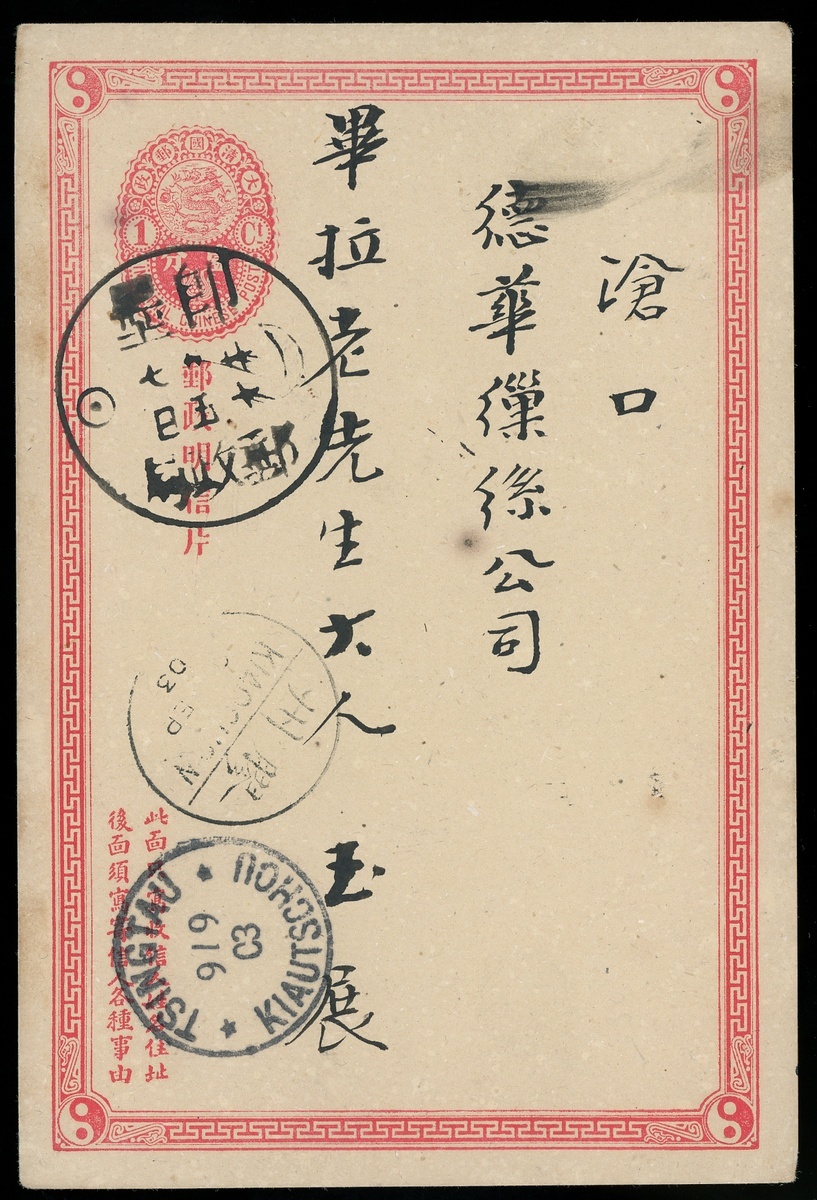 滄口
德華繅絲公司
畢拉老先生大人 玉展
大清國郵政
1 Ct
分
CHINESE POST
郵政明信片
七日
郵政
KIAOCHOW
膠州
03
TSINGTAU
KIAUTSCHOU
9/9
03
後面須寫寄信人各種事由